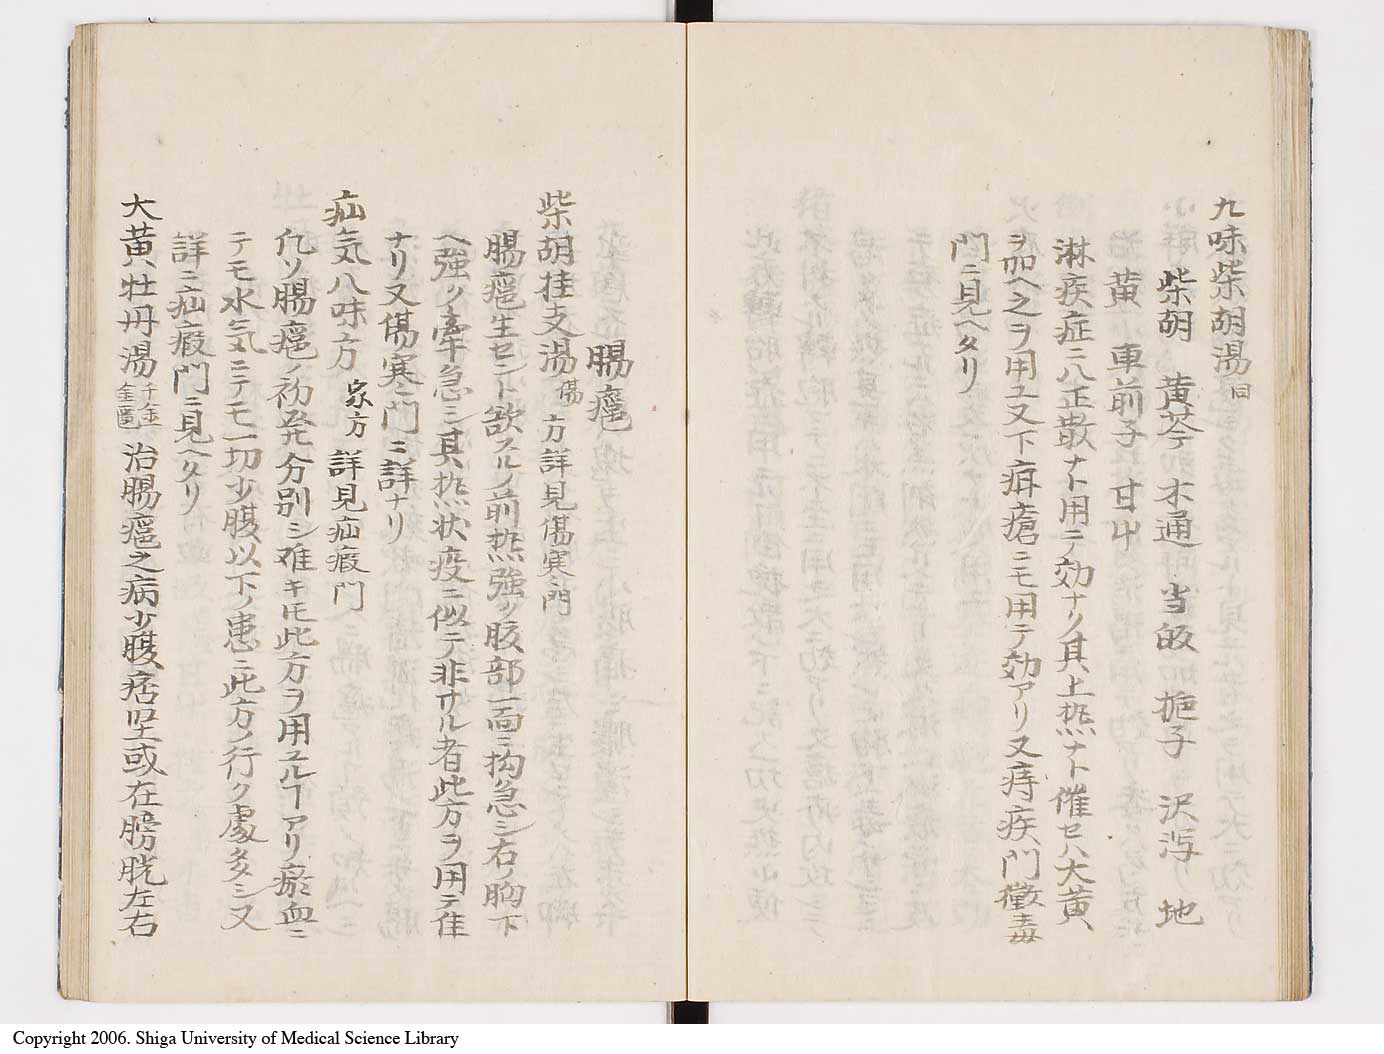 九味柴胡湯 同
柴胡 黄芩 木通 当皈 梔子 沢泻 地
黄 車前子 甘屮
淋疾症ニ八正散ナト用テ効ナク其上熱ナト催セハ大黄
ヲ加ヘ之ヲ用ユ又下疳瘡ニモ用テ効アリ又痔疾門黴毒
門ニ見ヘタリ
腸癰
柴胡桂支湯 傷 方詳見傷寒門
腸癰生セント欲スルノ前熱強ク腹部一面ニ拘急シ右ノ胸下
ヘ強ク牽急シ其熱状疫ニ似テ非サル者此方ヲ用テ佳
ナリ又傷寒ニ門ニ詳ナリ
疝気八味方 家方 詳見疝瘕門
凢ソ腸癰ノ初発分別シ难キモ此方ヲ用ユルヿアリ瘀血ニ
テモ水気ニテモ一切少腹以下ノ患ニ此方ノ行ク處多シ又
詳ニ疝瘕門ニ見ヘタリ
大黄牡丹湯 千金 金匱 治腸癰之病少腹痞坚或在膀胱左右
Copyright 2006. Shiga University of Medical Science Library